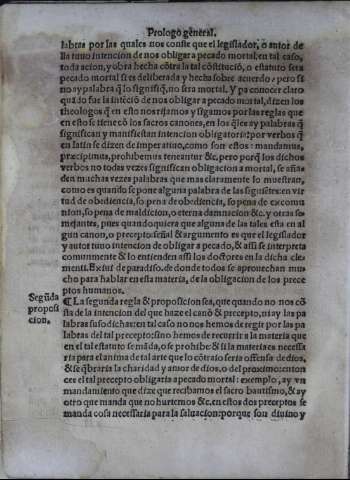 Prologo general.
labras por las quales nos conste que el legislador, o autor de
lla tuuo intencion de nos obligar a pecado mortal: en tal caso,
toda acion, y obra hecha cõtra la tal cõstituciõ, o estatuto sera
pecado mortal si es deliberada y hecha sobre acuerdo: pero si
no ay palabra q̃ lo signifiq̃, no sera mortal. Y pa conocer claro
quãdo fue la intẽciõ de nos obligar a pecado mortal, dizen los
theologos q̃ en esto nos rijamos y sigamos por las reglas que
en esto se tienẽ õ los sacros canones, en los q̃les ay palabras q̃
significan y manifiestan intencion obligatoria: por verbos q̃
en latin se dizen de imperatiuo, como son estos: mandamus,
præcipimus, prohibemus teneantur &c. pero porq̃ los dichos
verbos no todas vezes significan obligacion a mortal, se aña-
den muchas vezes palabras que mas claramente lo muestran,
como es quando se pone alguna palabra de las siguiẽtes: en vir
tud de obediencia, so pena de obediencia, so pena de excomu
nion, so pena de maldicion, o eterna damnacion &c. y otras se-
mejante, pues quando quiera que alguna de las tales esta en al
gun canon, o precepto: señal & argumento es que el legislador
y autor tuuo intencion de obligar a pecado, & assi se interpreta
comunmente & lo entienden assi los doctores en la dicha cle-
menti. Exiui de paradiso. de donde todos se aprouechan mu-
cho para hablar en esta materia, de la obligacion de los prece
ptos humanos.
Segũda
proposi
cion.
¶ La segunda regla & proposicion sea, que quando no nos cõ
sta de la intencion del que haze el canõ & precepto, ni ay las pa
labras suso dichas: en tal caso no nos hemos de regir por las pa
labras del tal precepto: sino hemos de recurrir a la materia que
en el tal estatuto se mãda, o se prohibe & si la materia es necessa
ria para el anima de tal arte que lo cõtrario seria offensa de dios,
& se q̃braria la charidad y amor de dios, o del proximo: enton
ces el tal precepto obligaria a pecado mortal: exemplo, ay vn
mandamiento que dize que recibamos el sacro bautismo, & ay
otro que manda que no hurtemos &c. en estos dos preceptos se
manda cosa necessaria para la saluacion: porque son diuino y